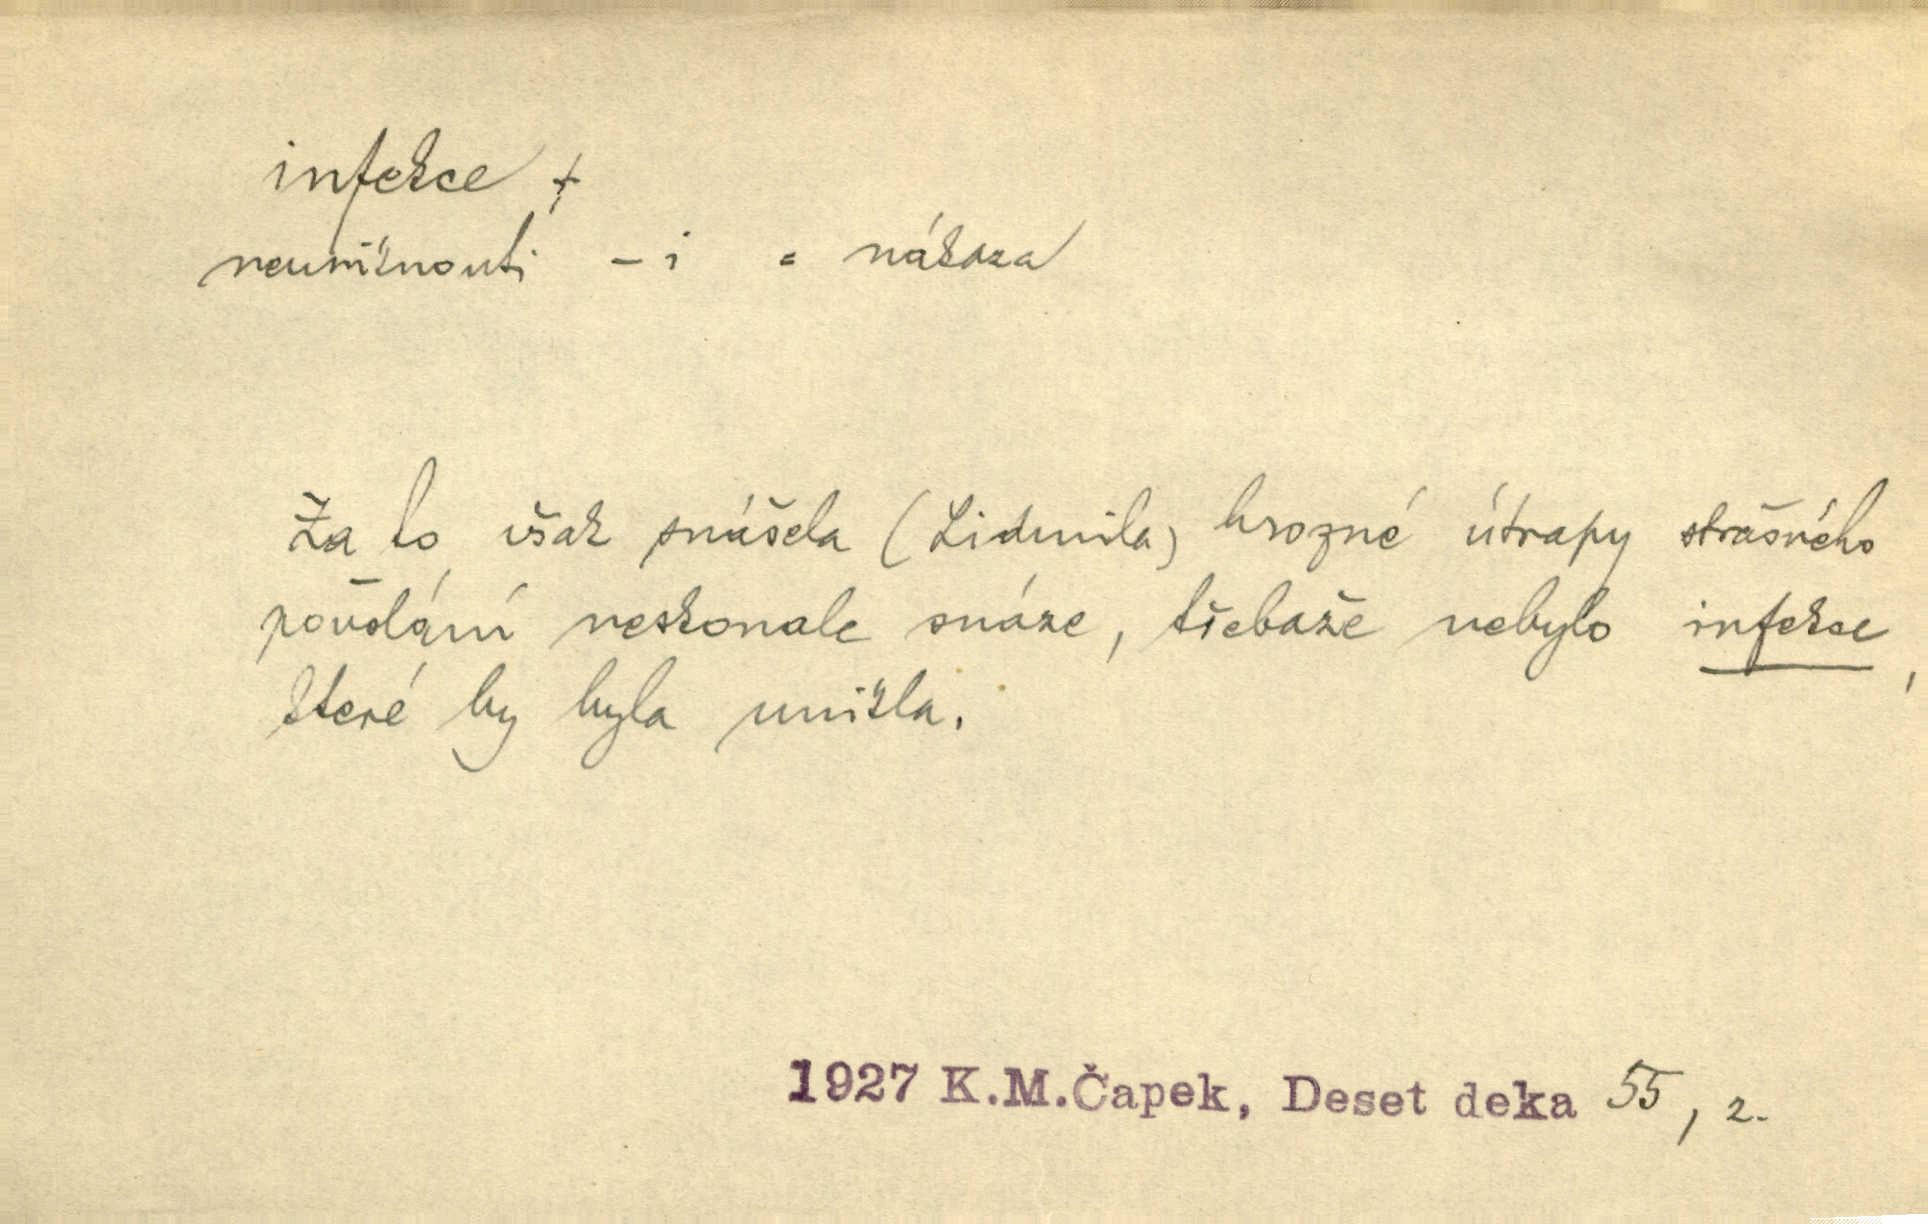 infekce f
neuniknouti – i = nákaza
Za to však snášela (Lidmila) hrozné útrapy strašného
povolání neskonale snáze, třebaže nebylo infekce,
které by byla unikla.
1927 K.M.Čapek, Deset deka 55, 2.